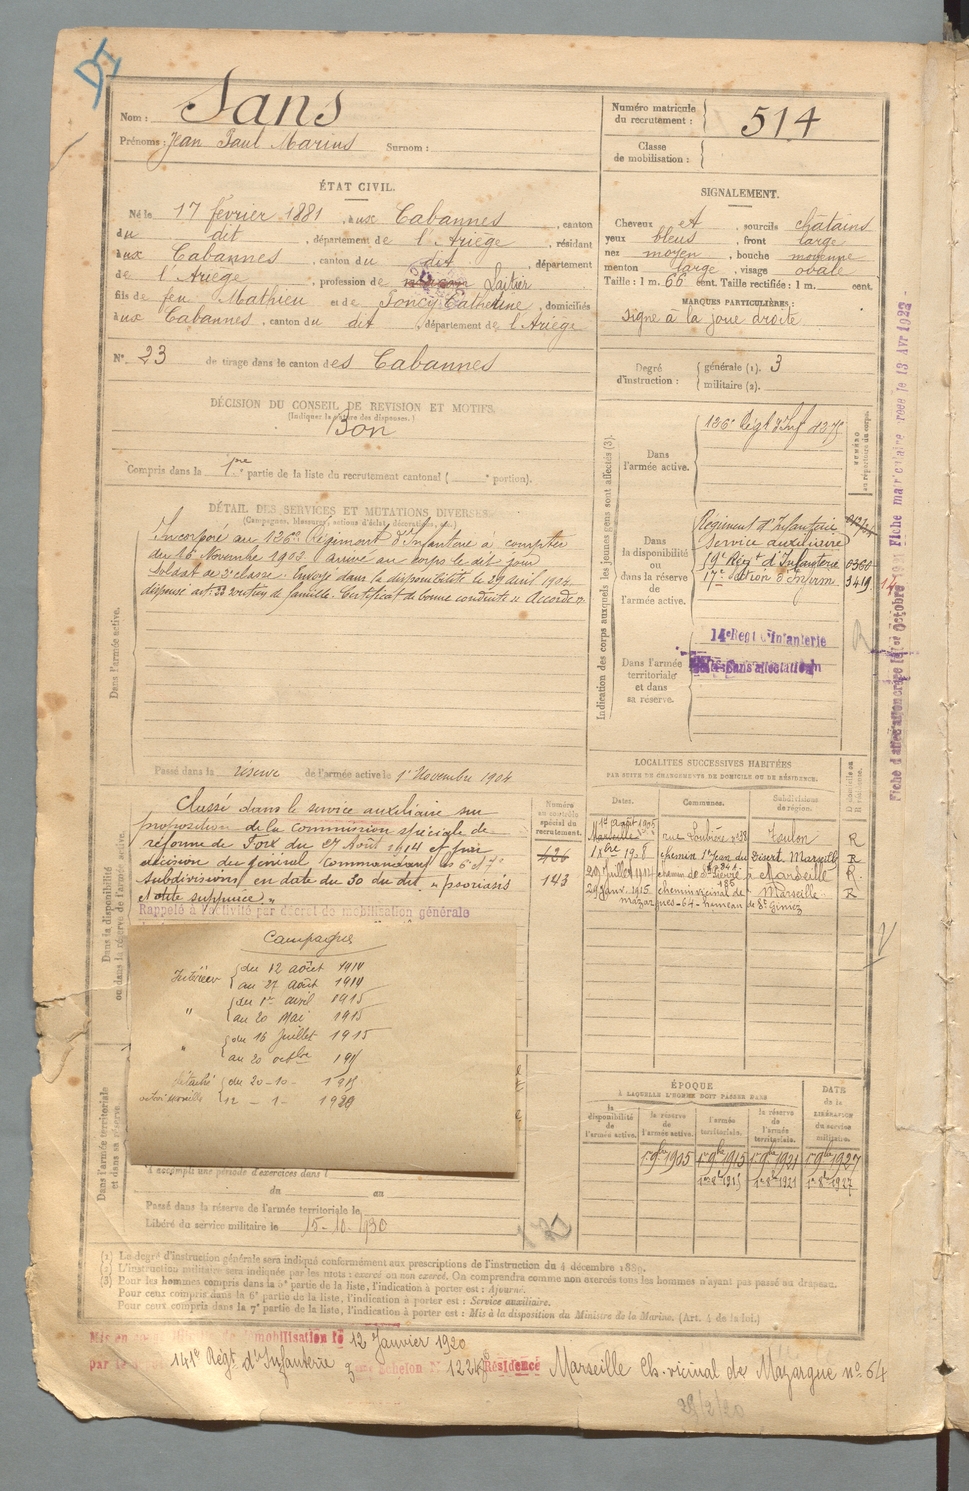 Nom : Sans
Prénoms : Jean Paul Marius Surnom :
Numéro matricule du recrutement : 514
Classe de mobilisation :
ÉTAT CIVIL.
Né le 17 février 1881, aux Cabannes, canton
du dit, département de l'Ariège, résidant
aux Cabannes, canton du dit, département
de l'Ariège, profession de Laitier
fils de feu Mathieu et de Soncy Catherine, domiciliés
aux Cabannes, canton du dit, département de l'Ariège
N° 23 de tirage dans le canton des Cabannes
SIGNALEMENT.
Cheveux et, sourcils châtains
yeux bleus, front large
nez moyen, bouche moyenne
menton large, visage ovale
Taille : 1 m. 66 cent. Taille rectifiée : 1 m. cent.
MARQUES PARTICULIÈRES :
Signe à la joue droite
Degré d'instruction : générale (1). 3
militaire (2).
DÉCISION DU CONSEIL DE REVISION ET MOTIFS.
(Indiquer la nature des dispenses.)
Bon
Compris dans la 1re partie de la liste du recrutement cantonal ( portion).
DÉTAIL DES SERVICES ET MUTATIONS DIVERSES.
(Campagnes, blessures, actions d'éclat, décorations, etc.)
Dans l'armée active.
Incorporé au 126e Régiment d'Infanterie à compter
du 16 Novembre 1903 arrivé au corps le dit jour
soldat de 2e classe. Envoyé dans la disponibilité le 29 avril 1904
dispensé art. 22 soutien de famille. Certificat de bonne conduite "Accordé".
Passé dans la réserve de l'armée active le 1er Novembre 1904
Indication des corps auxquels les jeunes gens sont affectés (3).
NUMÉRO au répertoire du corps.
Dans l'armée active.
126e Régt d'Inf
Dans la disponibilité ou dans la réserve de l'armée active.
Régiment d'Infanterie
Service auxiliaire
19e Régt d'Infanterie 0360
17e Section d'Infirm. 3419
Dans l'armée territoriale et dans sa réserve.
14e Régt d'Infanterie
Sans affectation
Fiche matriculaire 13 Avr 1922
LOCALITÉS SUCCESSIVES HABITÉES
PAR SUITE DE CHANGEMENTS DE DOMICILE OU DE RÉSIDENCE.
Dates. Communes. Subdivisions de région. D domicile ou R résidence.
1er Août 1905 rue Loubière n°38 Toulon R
1 8bre 1908 chemin St Jean du Désert Marseille R
Marseille R
29 Janv. 1915 chemin vicinal de Marseille R
Mazargues-64-hameau de
Dans la disponibilité ou dans la réserve de l'armée active
Numéro au contrôle spécial du recrutement.
426
143
Classé dans le service auxiliaire sur
proposition de la Commission spéciale de
réforme de Foix du 27 Août 1914 et par
décision du général Commandant les 6e et 7e
subdivisions en date du 30 du dit, "psoriasis
et otite suppurée".
Rappelé à l'activité par décret de mobilisation générale
Campagnes
Intérieur du 12 août 1914
au 27 août 1914
" du 1er avril 1915
au 20 Mai 1915
" du 16 Juillet 1915
au 20 octobre 191
détaché du 20-10- 1915
12 - 1 - 1920
ÉPOQUE
À LAQUELLE L'HOMME DOIT PASSER DANS
la disponibilité de l'armée active. la réserve de l'armée active. l'armée territoriale. la réserve de l'armée territoriale.
DATE de la LIBÉRATION du service militaire.
1er 9bre 1905 1er 9bre 1915 1er 9bre 1921 1er 9bre 1927
1er 8bre 1915 1er 8bre 1921 1er 8bre 1927
Dans l'armée territoriale et dans sa réserve
A accompli une période d'exercices dans l
du au
Passé dans la réserve de l'armée territoriale le
Libéré du service militaire le 15-10-1930
(1) Le degré d'instruction générale sera indiqué conformément aux prescriptions de l'instruction du 4 décembre 1889.
(2) L'instruction militaire sera indiquée par les mots : exercé ou non exercé. On comprendra comme non exercés tous les hommes n'ayant pas passé au drapeau.
(3) Pour les hommes compris dans la 5e partie de la liste, l'indication à porter est : Ajourné.
Pour ceux compris dans la 6e partie de la liste, l'indication à porter est : Service auxiliaire.
Pour ceux compris dans la 7e partie de la liste, l'indication à porter est : Mis à la disposition du Ministre de la Marine. (Art. 4 de la loi.)
Mis en congé illimité de démobilisation le 12 Janvier 1920
par le 141e Régt d'Infanterie 3 Echelon N° Résidence Marseille Ch. vicinal de Mazargue n° 64